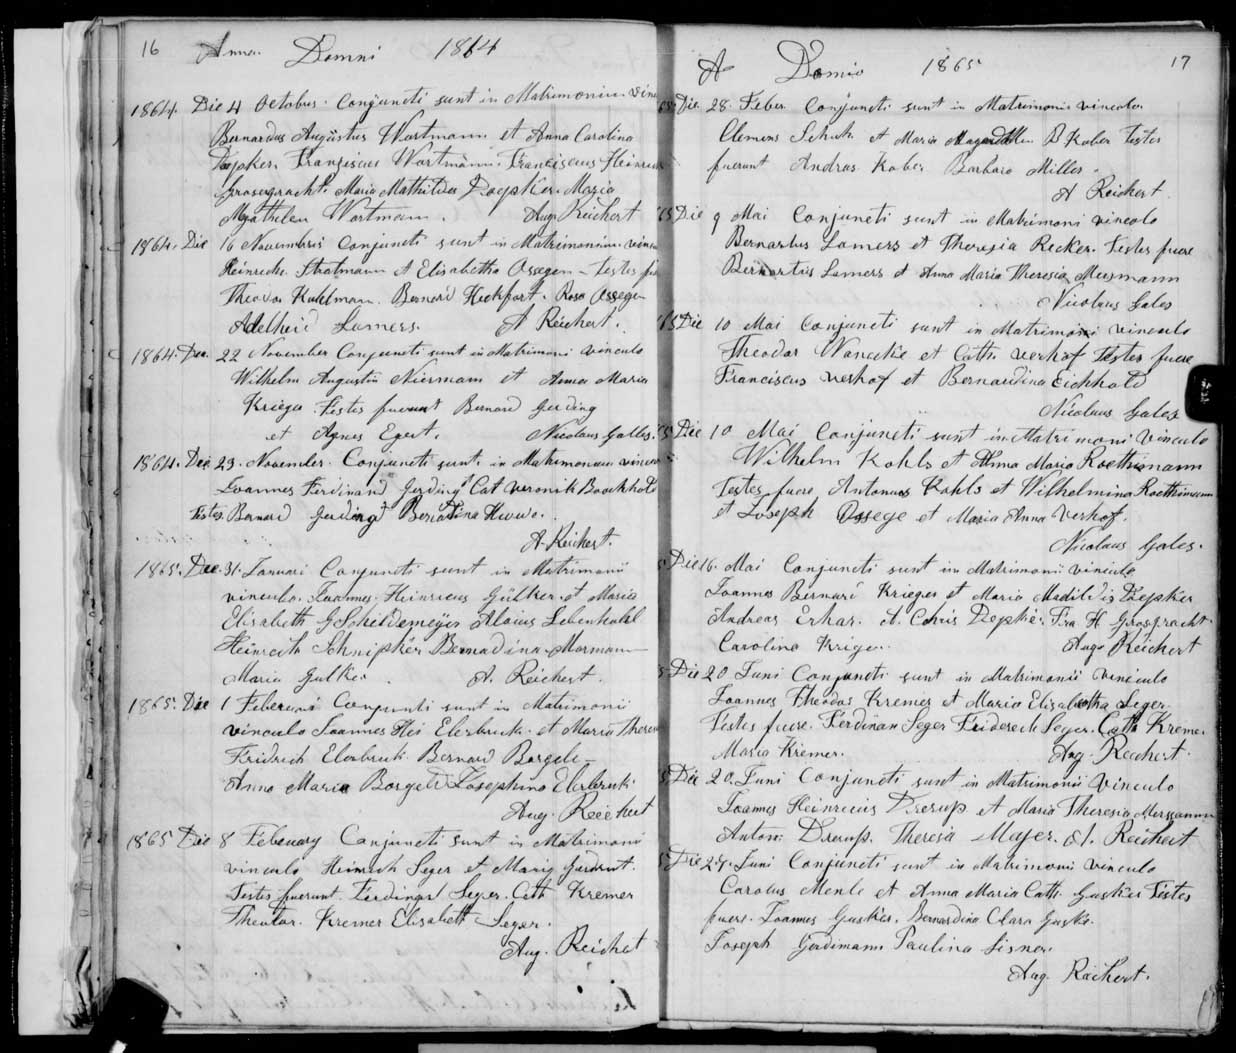 16 Anno Domni 1864
1864. Die 4 Octobus. Conjuncti sunt in Matrimonium vin
Bernardus Augustus Wortmann et Anna Carolina
Depker. Franciscus Wortmann. Franciscus Heinrich
Grosegracht. Maria Mathilda Doepker. Maria
Wortmann. Aug. Reichert
1864. Die 16 Novembris Conjuncti sunt in Matrimonium vinc
Heinrich Stratmann et Elisabetha Ossegen - Testes fu
Theodor Kuhlman. Bernard Heckfort. Rosa Ossegen
Adelheid Lamers. A Reichert.
1864. Die. 22 November Conjuncti sunt in Matrimoni vinculo
Wilhelm Augustin Niermann et Anna Maria
Krieger Testes fuerunt Bernard Gerding
et Agnes Egert. Nicolaus Galles.
1864. Die 23. November. Conjuncti sunt in Matrimonium vincu
Joannes Ferdinand Gerding Cat Veronik Boockhold
Testes. Bernard Gerding Bernadina Huwe.
A. Reichert.
1865. Die. 31. Januari Conjuncti sunt in Matrimonii
vinculo. Joannes Heinricus Gülker et Maria
Elisabeth Schildemeyer Aloius Lebenhahl
Heinrich Schnipker Bernadina Mormann
Maria Gulker. A. Reichert.
1865. Die 1 Feberari Conjuncti sunt in Matrimoni
vinculo Joannes Hei Elerbruck et Maria Theres
Fridrich Elerbruck Bernard Borgelt
Anna Maria Borgelt Josephina Elerbruck
Aug. Reichert
1865 Die 8 Febeuary Conjuncti sunt in Matrimoni
vinculo Heinrich Seger et Maria
Testes fuerunt. Ferdinand Seger. Cath Kremer
Theodor. Kremer Elisabeth Seger.
Aug. Reichet
A Domio 1865 17
65 Die 28. Feber Conjuncti sunt in Matrimoni vinculo
Clemens Schuh et Maria Magdallen B Kober Testes
fuerunt Andras Kober Barbara Miller.
A Reichert
65 Die 9 Mai Conjuncti sunt in Matrimoni vinculo
Bernartus Lamers et Theresia Recker. Testes fuere
Bernartus Lamers et Anna Maria Theresia Meismann
Nicolaus Gales
65 Die 10 Mai Conjuncti sunt in Matrimoni vinculo
Theodor Wancke et Cath. Verhof Testes fuere
Franciscus Verhof et Bernardina Eichhold
Nicolaus Gales
65 Die 10 Mai Conjuncti sunt in Matrimoni vinculo
Wilhelm Kohls et Anna Maria Roethmann
Testes fuere Antonius Kohls et Wilhelmina Roethmann
et Joseph Ossege et Maria Anna Verhof.
Nicolaus Gales.
5 Die 16. Mai Conjuncti sunt in Matrimoni vinculo
Joannes Bernard Krieger et Maria Depker
Andreas Erhar. et. Chris Depke. Fra H Grosgracht
Carolina Kriger. Aug Reichert
5 Die 20 Juni Conjuncti sunt in Matrimonii vinculo
Joannes Theodor Kremer et Maria Elisabetha Seger.
Testes fuere. Ferdinan Seger Friderech Seger. Cath Kreme.
Maria Kremer. Aug. Reichert.
5 Die 20. Juni Conjuncti sunt in Matrimonii Vinculo
Joannes Heinricus Drerup et Maria Theresia Mersmann
Anton Drerup. Theresa Majer. A. Reichert
5 Die 27. Juni Conjuncti sunt in Matrimonii vinculo
Carolus Menle et Anna Maria Cath Guskie Testes
fuere. Joannes Guskie. Bernardina Clara Guske.
Joseph Gerdimann Paulina Lisner.
Aug. Reichert.